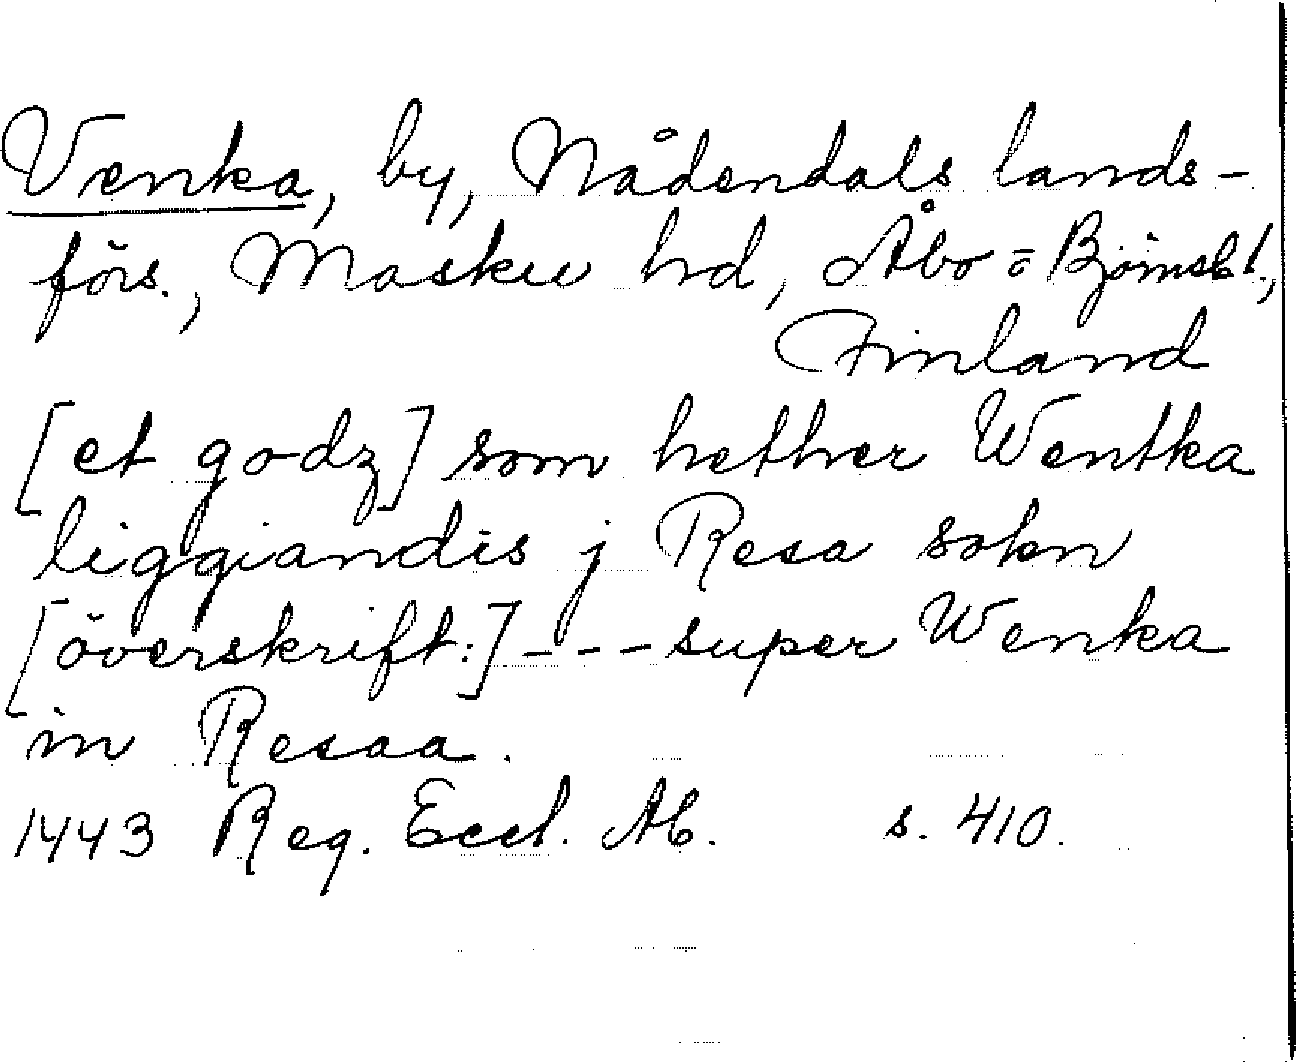 Venka, by, Nådendals lands-
förs., Masku hd, Åbo o Björneb l.,
Finland
[et godz] som hether Wentka
liggiandis j Resa sokn
[överskrift:] --- super Wenka
in Resaa.
1443 Reg. Eccl. Ab. s. 410.